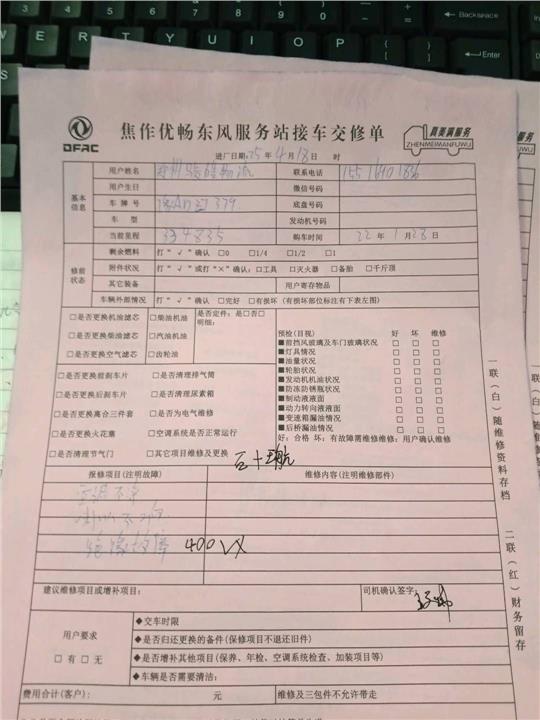 DFAC
焦作优畅东风服务站接车交修单
真美满服务
ZHENMEIMANFUWU
进厂日期:25 年 4 月 18 日 时
基本信息
用户姓名 联系电话
用户生日 微信号码
车牌号 底盘号码
车型 发动机号码
当前里程 334835 购车时间 22 年 1 月 28 日
修前状态
剩余燃料 打“√”确认 □0 □1/4 □1/2 □1
附件状况 打“√”或打“×”确认:□工具 □灭火器 □备胎 □千斤顶
其它装备 用户寄存物品
车辆外部情况 打“√”确认 □完好 □有损坏(有损坏部位标注有下表左图)
□是否更换机油滤芯 □柴油机油 是否定件:是□否□
明细:
□是否更换柴油滤芯 □汽油机油
□是否更换空气滤芯 □齿轮油
□是否更换前刹车片 □是否清理排气筒
□是否更换后刹车片 □是否清理尿素箱
□是否更换离合三件套 □是否为电气维修
□是否更换火花塞 □空调系统是否正常运行
□是否清理节气门 □其它项目维修及更换
预检(目视) 好 坏 维修
■前挡风玻璃及车门玻璃状况 □ □ □
■灯具情况 □ □ □
■油量状况 □ □ □
■轮胎状况 □ □ □
■发动机机油状况 □ □ □
■防冻防锈瓶状况 □ □ □
■制动液液面 □ □ □
■动力转向液液面 □ □ □
■变速箱漏油情况 □ □ □
■后桥漏油情况 □ □ □
好:合格 坏:有故障需维修维修:用户确认维修
报修项目(注明故障) 维修内容(注明维修部件)
空调不凉
400
建议维修项目或增补项目: 司机确认签字:
用户要求
□有□无
◆交车时限
◆是否归还更换的备件(保修项目不退还旧件)
◆是否增补其他项目(保养、年检、空调系统检查、加装项目等)
◆车辆是否需要清洁:
费用合计(客户): 元 维修及三包件不允许带走
一联(白)随维修资料存档
二联(红)财务留存